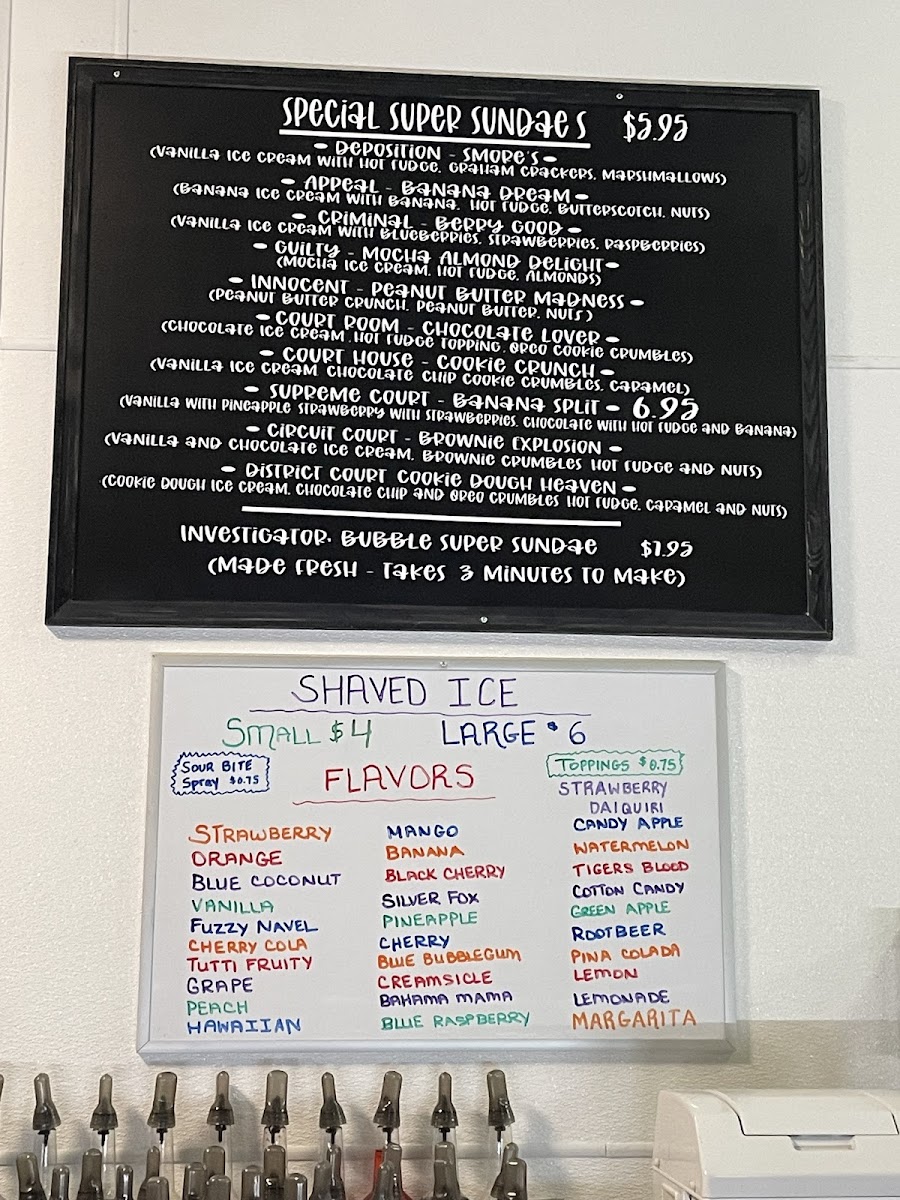 SPECIAL SUPER SUNDAES $5.95
- DEPOSITION - SMORE'S -
(VANILLA ICE CREAM WITH HOT FUDGE, GRAHAM CRACKERS, MARSHMALLOWS)
- APPEAL - BANANA DREAM -
(BANANA ICE CREAM WITH BANANA, HOT FUDGE, BUTTERSCOTCH, NUTS)
- CRIMINAL - BERRY GOOD -
(VANILLA ICE CREAM WITH BLUEBERRIES, STRAWBERRIES, RASPBERRIES)
- GUILTY - MOCHA ALMOND DELIGHT -
(MOCHA ICE CREAM, HOT FUDGE, ALMONDS)
- INNOCENT - PEANUT BUTTER MADNESS -
(PEANUT BUTTER CRUNCH, PEANUT BUTTER, NUTS)
- COURT ROOM - CHOCOLATE LOVER -
(CHOCOLATE ICE CREAM, HOT FUDGE TOPPING, OREO COOKIE CRUMBLES)
- COURT HOUSE - COOKIE CRUNCH -
(VANILLA ICE CREAM CHOCOLATE CHIP COOKIE CRUMBLES, CARAMEL)
- SUPREME COURT - BANANA SPLIT - 6.95
(VANILLA WITH PINEAPPLE STRAWBERRY WITH STRAWBERRIES, CHOCOLATE WITH HOT FUDGE AND BANANA)
- CIRCUIT COURT - BROWNIE EXPLOSION -
(VANILLA AND CHOCOLATE ICE CREAM, BROWNIE CRUMBLES HOT FUDGE AND NUTS)
- DISTRICT COURT COOKIE DOUGH HEAVEN -
(COOKIE DOUGH ICE CREAM, CHOCOLATE CHIP AND OREO CRUMBLES HOT FUDGE, CARAMEL AND NUTS)
INVESTIGATOR, BUBBLE SUPER SUNDAE $7.95
(MADE FRESH - TAKES 3 MINUTES TO MAKE)
SHAVED ICE
SMALL $4 LARGE $6
SOUR BITE
SPRAY $0.75
FLAVORS
TOPPINGS $0.75
STRAWBERRY
ORANGE
BLUE COCONUT
VANILLA
FUZZY NAVEL
CHERRY COLA
TUTTI FRUITY
GRAPE
PEACH
HAWAIIAN
MANGO
BANANA
BLACK CHERRY
SILVER FOX
PINEAPPLE
CHERRY
BLUE BUBBLEGUM
CREAMSICLE
BAHAMA MAMA
BLUE RASPBERRY
STRAWBERRY
DAIQUIRI
CANDY APPLE
WATERMELON
TIGERS BLOOD
COTTON CANDY
GREEN APPLE
ROOTBEER
PINA COLADA
LEMON
LEMONADE
MARGARITA